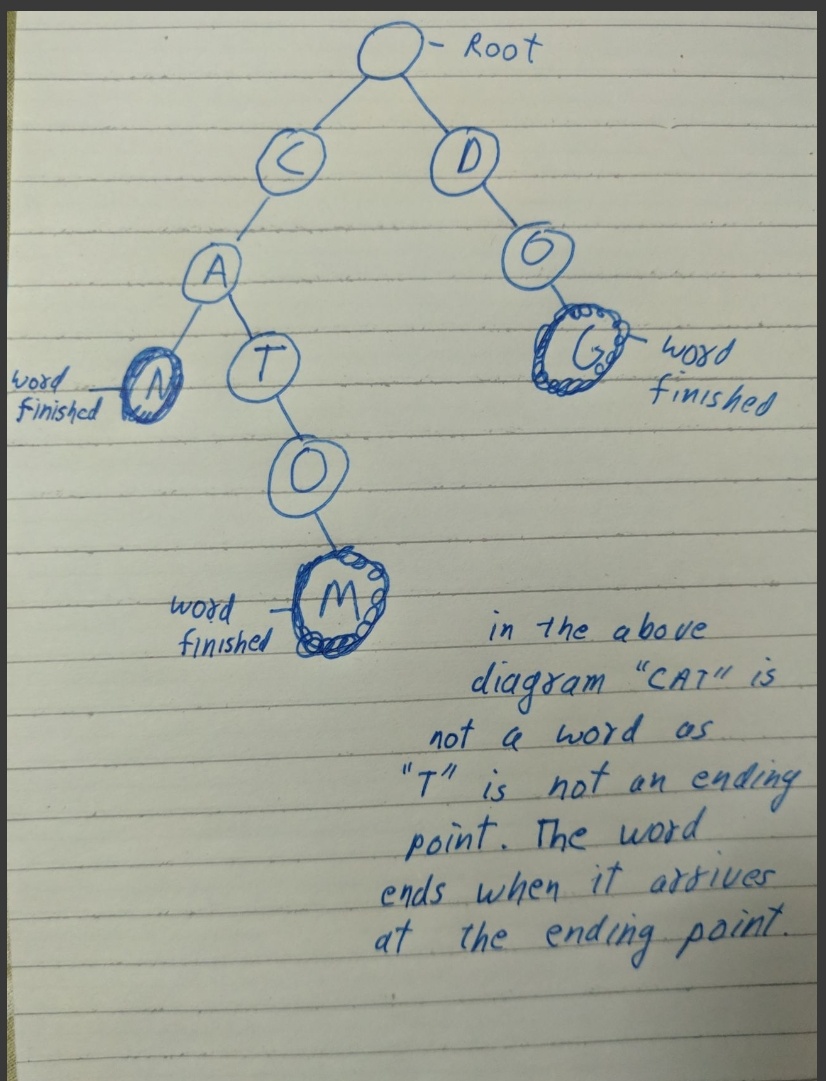 - Root
C
D
A
O
N
T
G
word
finished
word
finished
O
M
word
finished
in the above
diagram "CAT" is
not a word as
"T" is not an ending
point. The word
ends when it arrives
at the ending point.